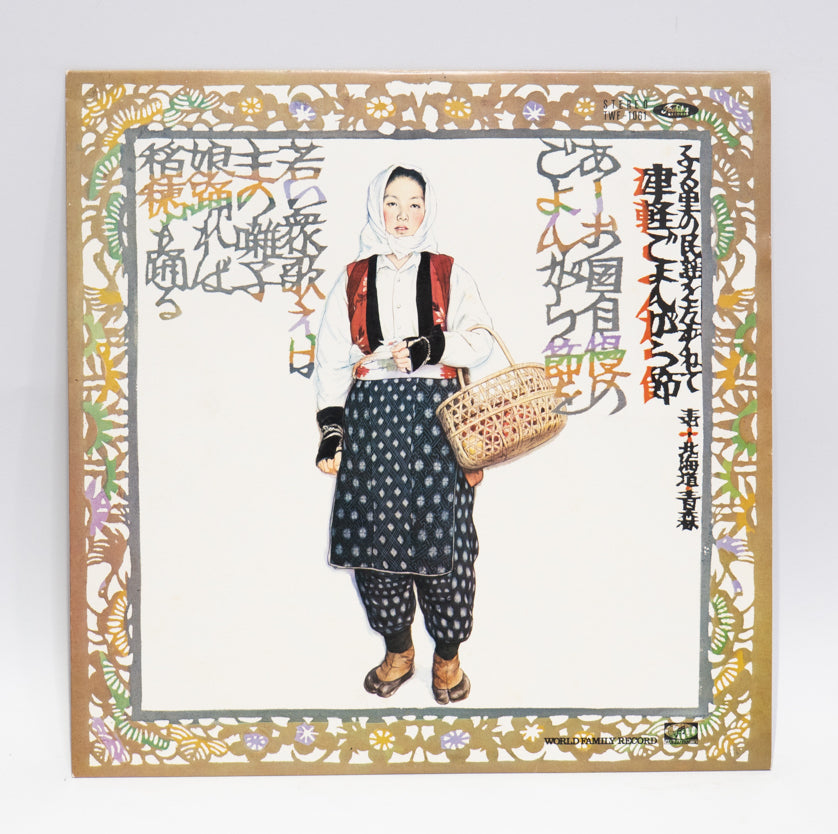 STEREO
ふる里の民謡をたずねて
津軽じょんがら節
壱・北海道・青森
あーお国自慢の
じょんがら節よ
若い衆歌えば
主の囃子
娘踊れば
稲穂も踊る
WORLD FAMILY RECORD